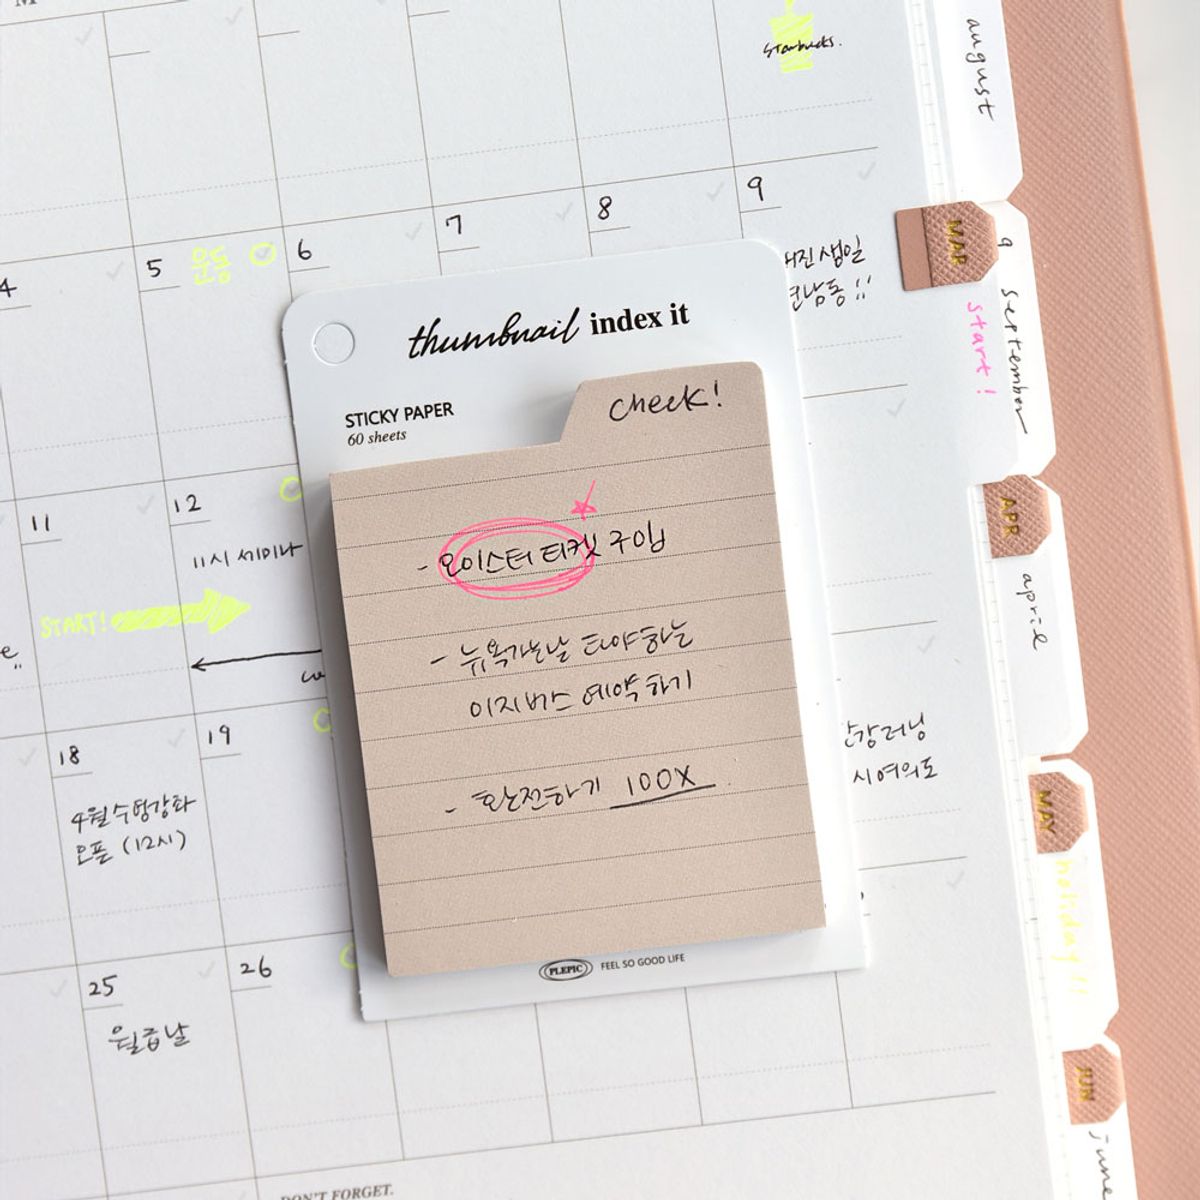 M
Starbucks.
august
4
5 운동
6
7
8
9
생일
연남동!!
MAR
9 september
start!
thumbnail index it
STICKY PAPER
60 sheets
check!
- 오이스터 티켓 구입
- 뉴욕가는날 타야하는
이지버스 예약하기
- 환전하기 100X
PLEPIC FEEL SO GOOD LIFE
11
12
11시 세미나
START!
APR
april
18
4월 수영강좌
오픈 (12시)
19
한강러닝
시 여의도
MAY
holiday!!!
25
월급날
26
JUN
june
DON'T FORGET.